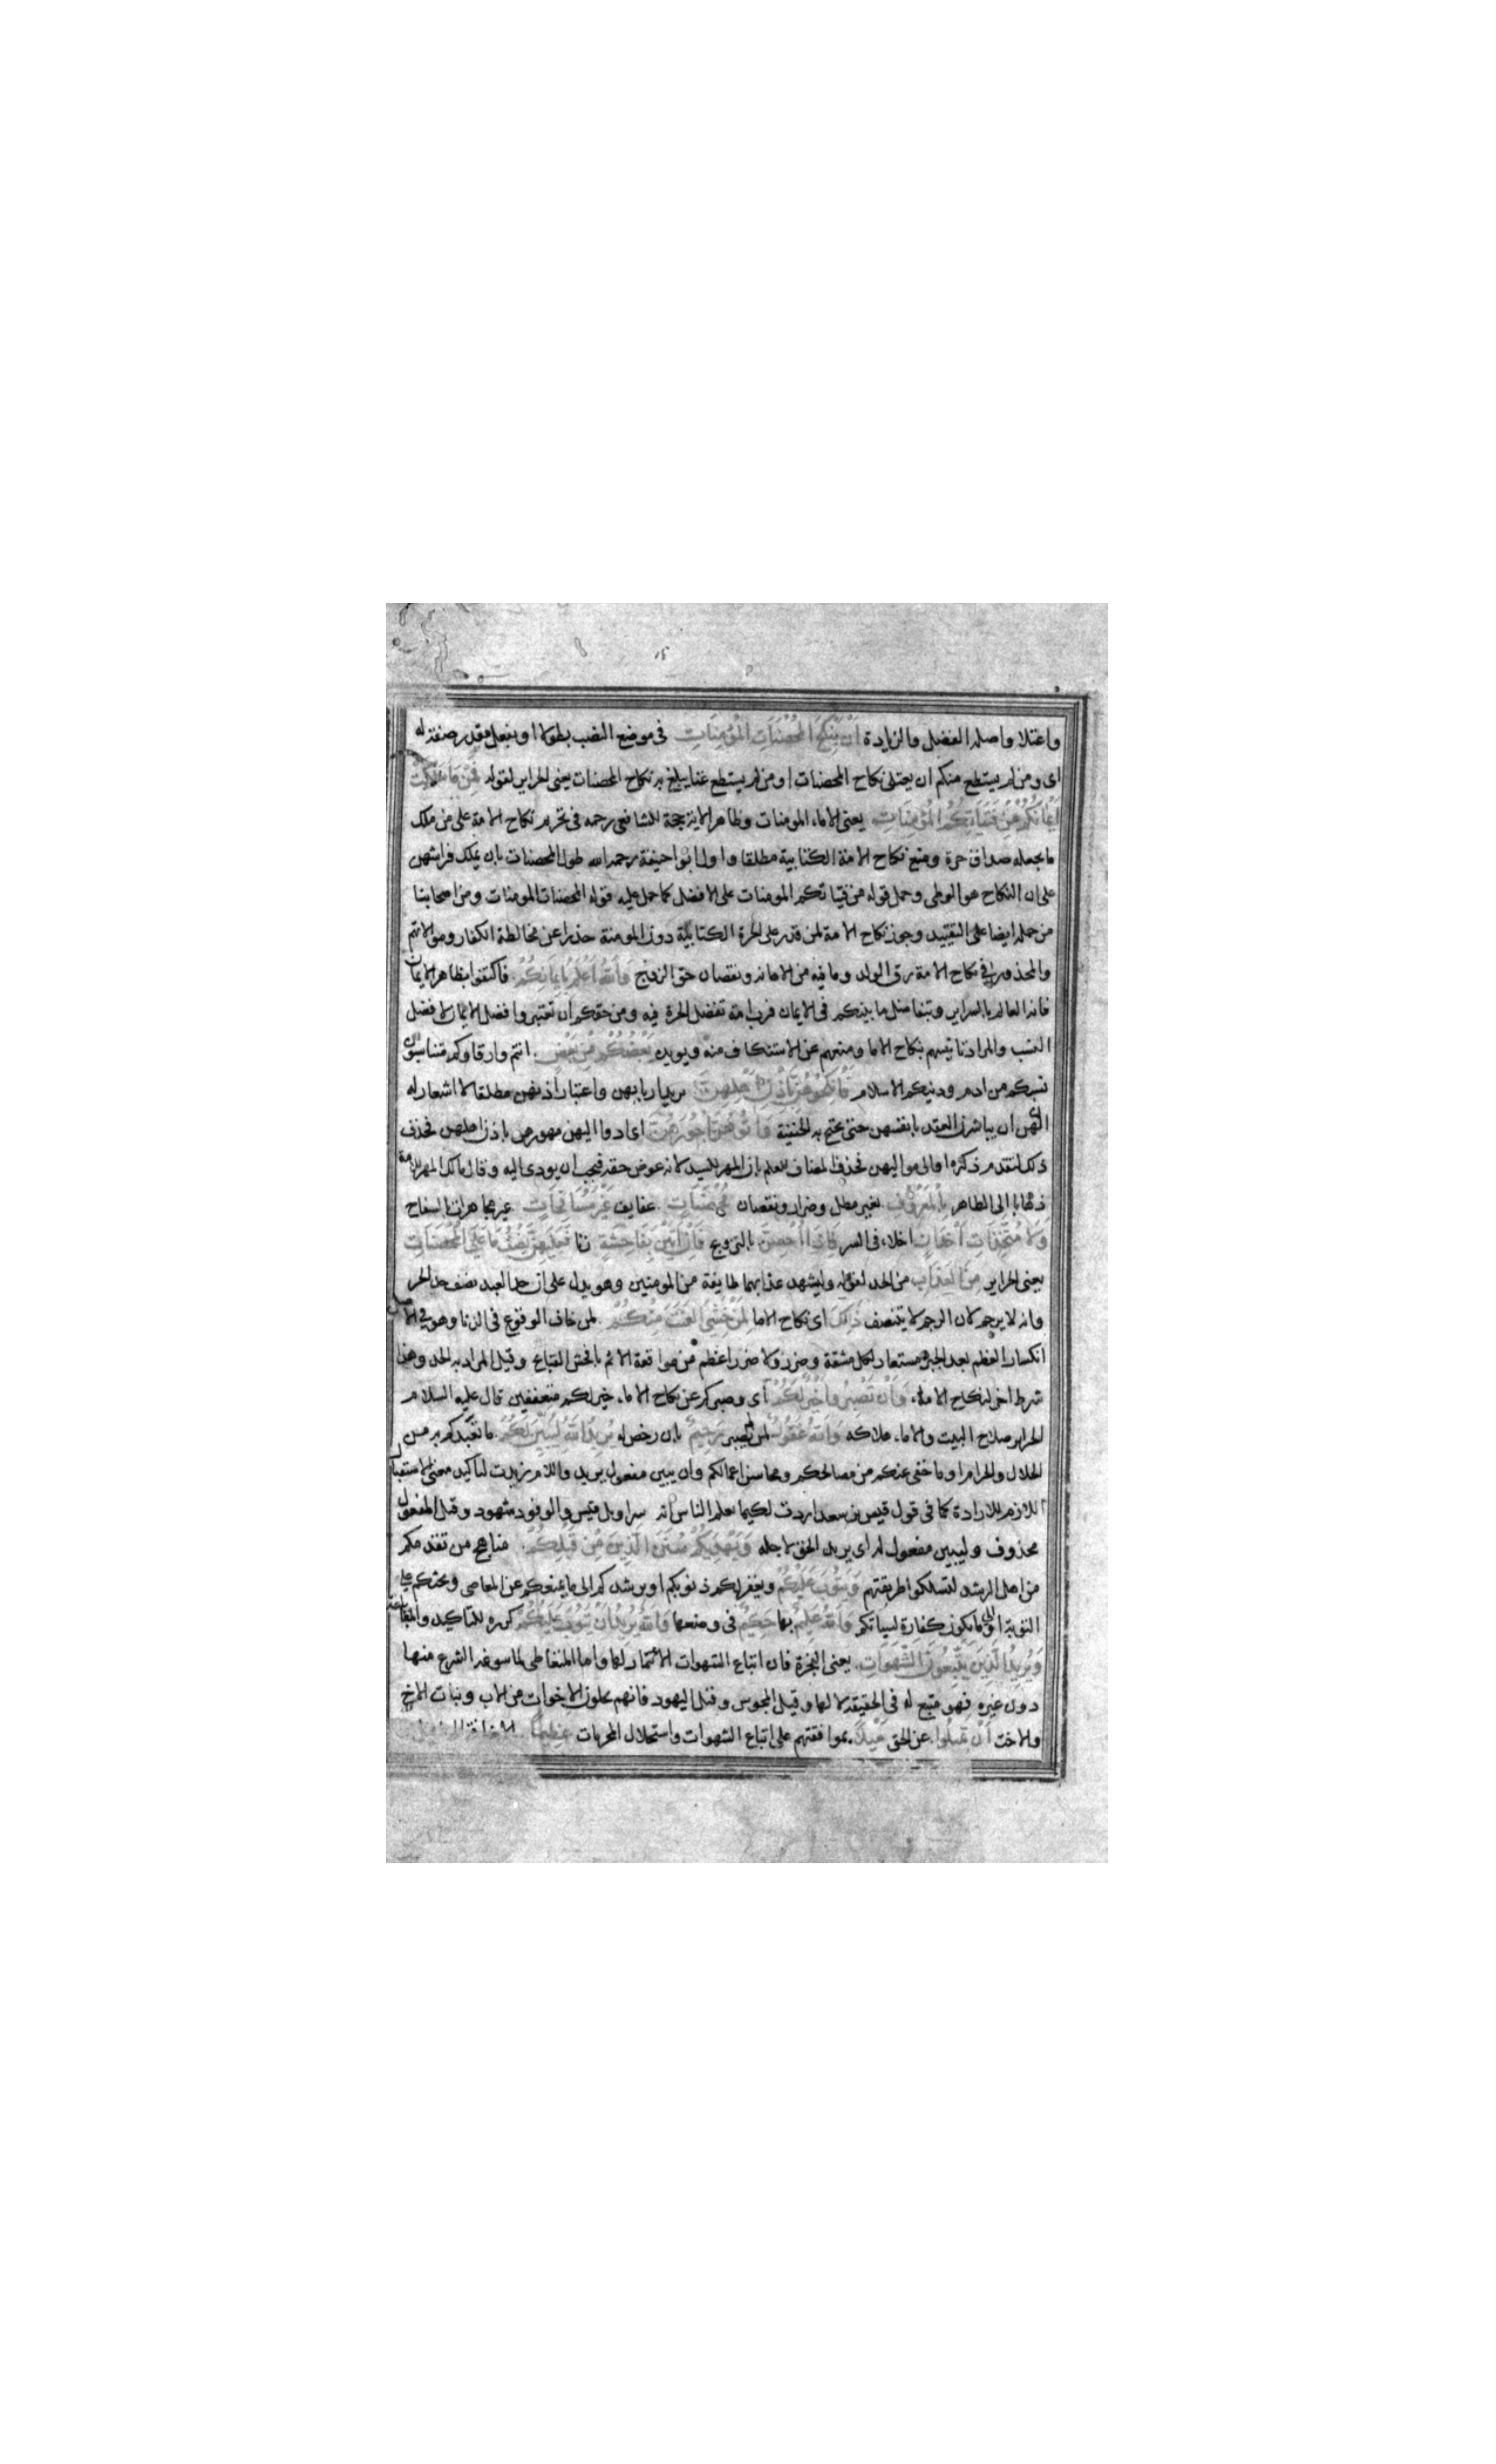 واعتلا واصله الفضل والزيادة أَنْ يَنْكِحَ الْمُحْصَنَاتِ الْمُؤْمِنَاتِ في موضع النصب بطولا او بفعل مقدر صفة له
اى ومن لم يستطع منكم ان يعتلى نكاح المحصنات او من لم يستطع غنا يبلغ به نكاح المحصنات يعنى الحراير لقوله فَمِنْ مَا مَلَكَتْ
أَيْمَانُكُمْ مِنْ فَتَيَاتِكُمُ الْمُؤْمِنَاتِ يعنى الاماء المومنات وظاهر الاية حجة للشافعى رحمه فى تحريم نكاح الامة على من ملك
ما يجعله صداق حرة ومنع نكاح الامة الكتابية مطلقا واول ابوا حنيفة رحمه الله طول المحصنات بان يملك فراشهن
على ان النكاح هو الوطى وحمل قوله من فتياتكم المومنات على الافضل كما حمل عليه قوله المحصنات المومنات ومن اصحابنا
من حمله ايضا على التقييد وجوز نكاح الامة لمن قدر على الحرة الكتابية دون المومنة حذرا عن مخالطة الكفار وموالاتهم
والمحذور فى نكاح الامة رق الولد وما فيه من الاهانة ونقصان حق الزوج وَاللَّهُ أَعْلَمُ بِإِيمَانِكُمْ فاكتفوا بظاهر الايمان
فانه العالم بالسراير وبتفاضل ما بينكم فى الايمان فرب امة تفضل الحرة فيه ومن حقكم ان تعتبروا فضل الايمان لا فضل
النسب والمراد تانيسهم بنكاح الاما ومنعهم عن الاستنكاف منه ويويده بَعْضُكُمْ مِنْ بَعْضٍ انتم وارقاوكم متناسبون
نسبكم من ادم ودينكم الاسلام فَانْكِحُوهُنَّ بِإِذْنِ أَهْلِهِنَّ يريد اربابهن واعتبار اذنهن مطلقا لا اشعار له
الى ان لهن ان يباشرن العقد بانفسهن حتى يحتج به الحنفية وَآتُوهُنَّ أُجُورَهُنَّ اى ادوا اليهن مهورهن باذن اهلهن فحذف
ذلك لتقدم ذكره او الى مواليهن فحذف المضاف للعلم بان المهر للسيد لانه عوض حقه فيجب ان يودى اليه وقال مالك المهر للامة
ذهابا الى الظاهر بِالْمَعْرُوفِ بغير مطل وضرار ونقصان مُحْصَنَاتٍ عفايف غَيْرَ مُسَافِحَاتٍ غير مجاهرات بالسفاح
وَلَا مُتَّخِذَاتِ أَخْدَانٍ اخلاء فى السر فَإِذَا أُحْصِنَّ بالتزويج فَإِنْ أَتَيْنَ بِفَاحِشَةٍ زنا فَعَلَيْهِنَّ نِصْفُ مَا عَلَى الْمُحْصَنَاتِ
يعنى الحراير مِنَ الْعَذَابِ من الحد لقوله وليشهد عذابهما طايفة من المومنين وهو يدل على ان حد العبد نصف حد الحر
وانه لا يرجم لان الرجم لا يتنصف ذَلِكَ اى نكاح الاما لِمَنْ خَشِيَ الْعَنَتَ مِنْكُمْ لمن خاف الوقوع فى الزنا وهو فى الاصل
انكسار العظم بعد الجبر مستعار لكل مشقة وضرر ولا ضرر اعظم من مواقعة الاثم بافحش القبايح وقيل المراد به الحد وهذا
شرط اخر لنكاح الاماء وَأَنْ تَصْبِرُوا خَيْرٌ لَكُمْ اى وصبركم عن نكاح الاماء خير لكم متعففين قال عليه السلام
الحراير صلاح البيت والاماء هلاكه وَاللَّهُ غَفُورٌ لمن لم يصبر رَحِيمٌ بان رخص له يُرِيدُ اللَّهُ لِيُبَيِّنَ لَكُمْ ما تعبدكم به من
الحلال والحرام او ما خفى عنكم من مصالحكم ومحاسن اعمالكم وان يبين مفعول يريد واللام زيدت لتاكيد معنى الاستقبال
اللازم للارادة كما فى قول قيس بن سعد اردت لكيما يعلم الناس انه سراويل قيس والوفود شهود وقيل المفعول
محذوف وليبين مفعول له اى يريد الحق لاجله وَيَهْدِيَكُمْ سُنَنَ الَّذِينَ مِنْ قَبْلِكُمْ مناهج من تقدمكم
من اهل الرشد لتسلكوا طريقتهم وَيَتُوبَ عَلَيْكُمْ ويغفر لكم ذنوبكم او يرشدكم الى ما يمنعكم عن المعاصى ويحثكم على
التوبة او الى ما يكون كفارة لسياتكم وَاللَّهُ عَلِيمٌ بها حَكِيمٌ فى وضعها وَاللَّهُ يُرِيدُ أَنْ يَتُوبَ عَلَيْكُمْ كرره للتاكيد والمبالغة
وَيُرِيدُ الَّذِينَ يَتَّبِعُونَ الشَّهَوَاتِ يعنى الفجرة فان اتباع الشهوات الايتمار لها واما المتعاطى لما سوغه الشرع منها
دون غيره فهو متبع له فى الحقيقة لا لها وقيل المجوس وقيل اليهود فانهم يحلون الاخوات من الاب وبنات الاخ
والاخت أَنْ تَمِيلُوا عن الحق مَيْلًا بموافقتهم على اتباع الشهوات واستحلال المحرمات عَظِيمًا